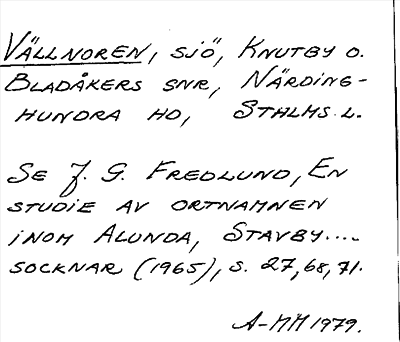 VÄLLNOREN, SJÖ, KNUTBY O.
BLADÅKERS SNR, NÄRDING-
HUNDRA HD, STHLMS L.
SE J. G. FREDLUND, EN
STUDIE AV ORTNAMNEN
INOM ALUNDA, STAVBY....
SOCKNAR (1965), S. 27, 68, 71.
A-MM 1979.